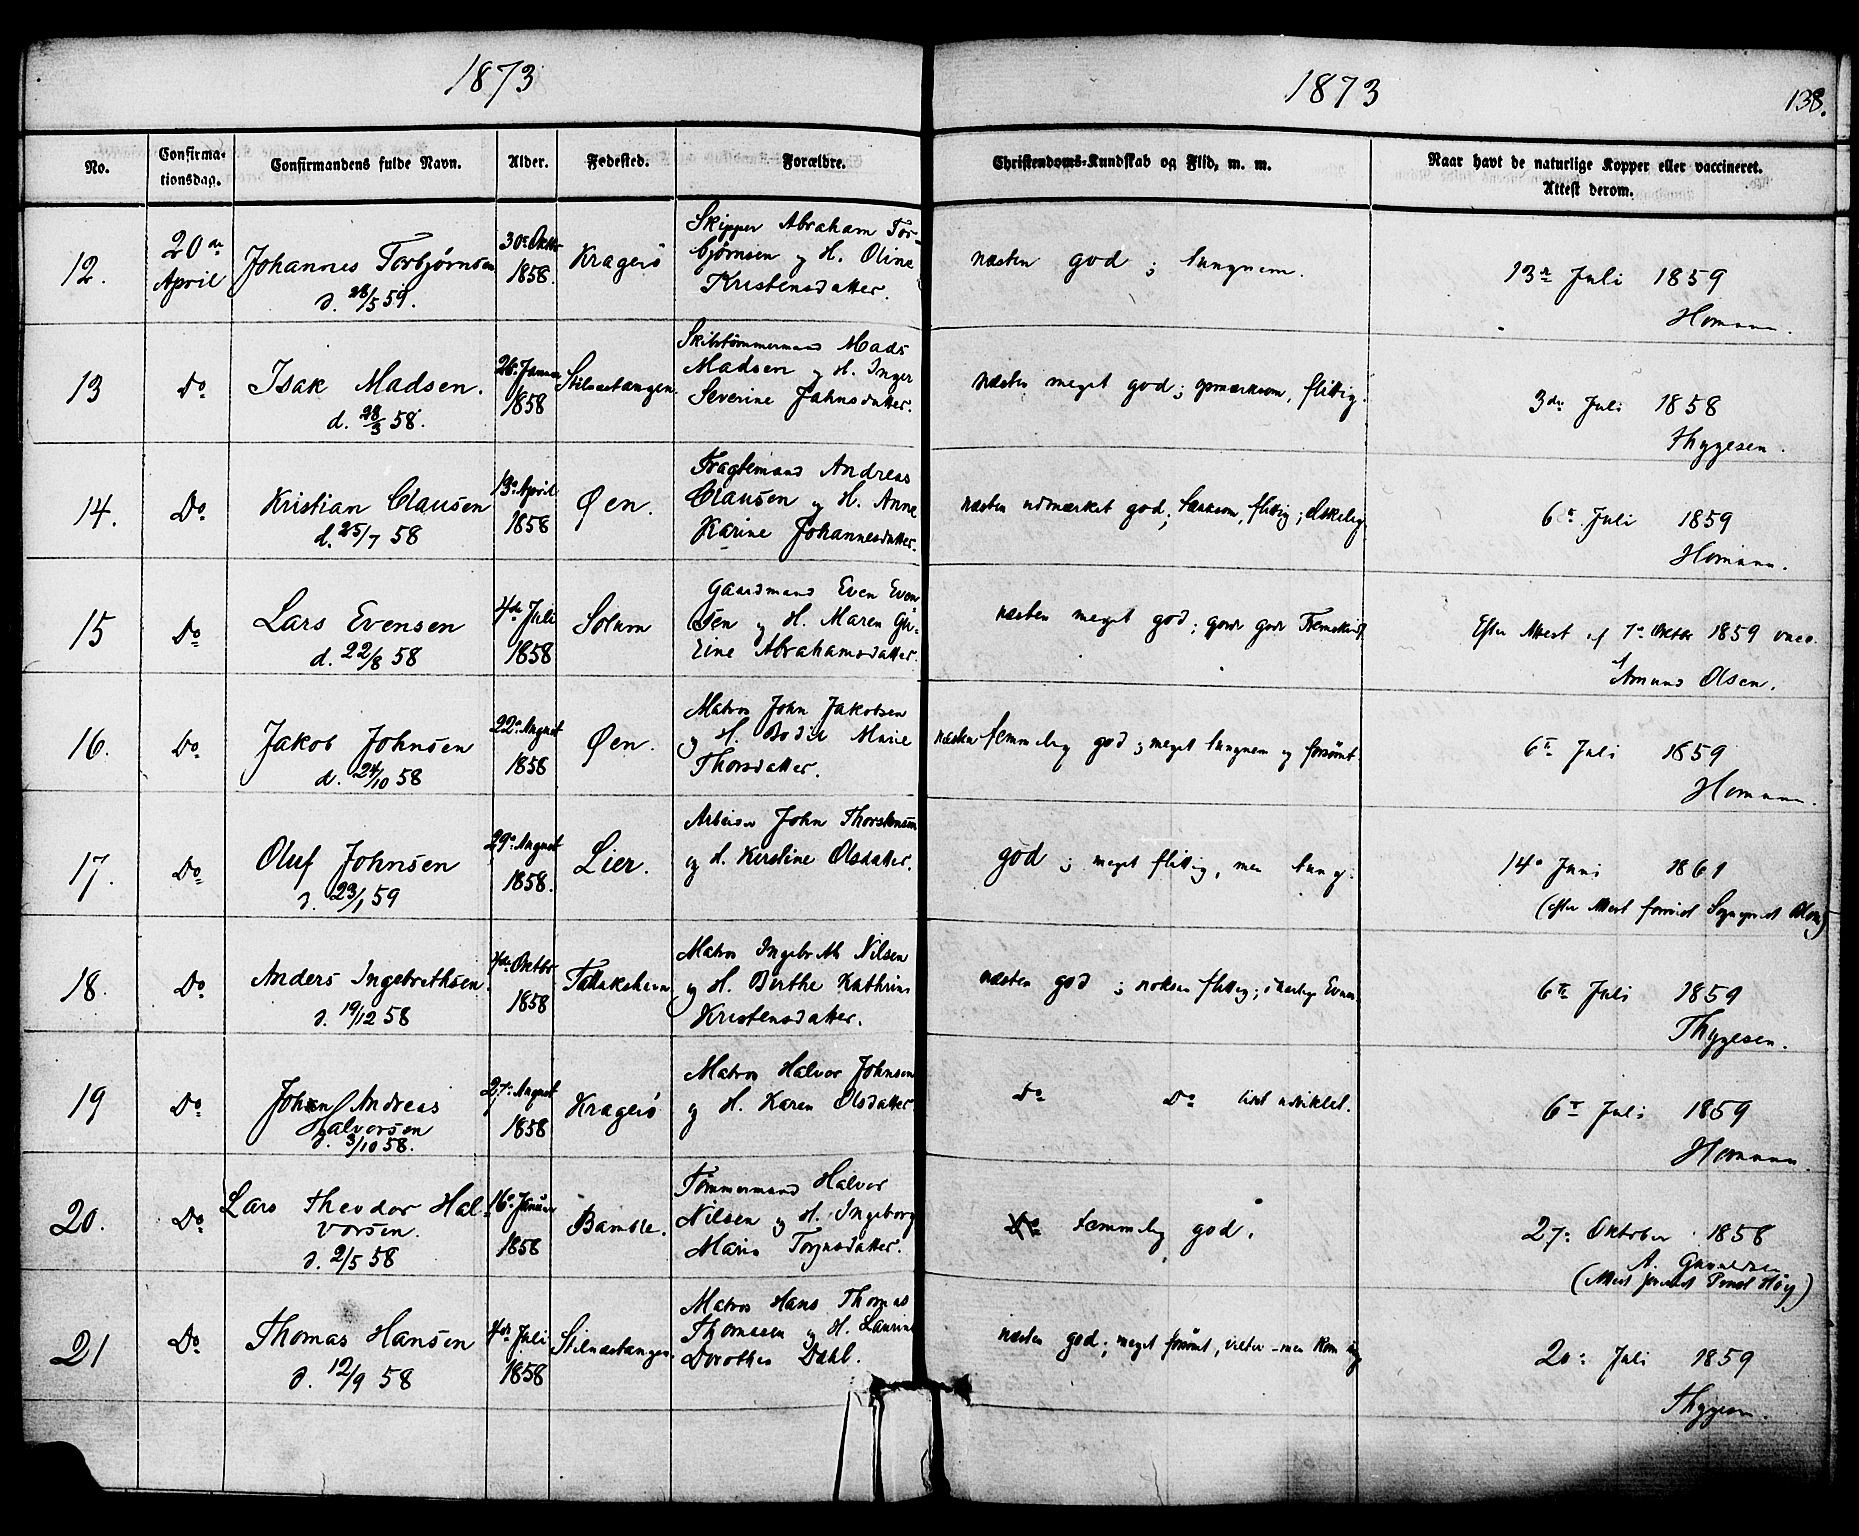 1873
1873
138.
No.
Confirma-
tionsdag.
Confirmandens fulde Navn.
Alder.
Fødested.
Forældre.
Christendoms-Kundskab og Flid, m. m.
Naar havt de naturlige Kopper eller vaccineret.
Attest derom.
12.
20de
April
Johannes Torbjørnsen
d. 28/5 59.
30e Oktbr
1858.
Kragerö
Skipper Abraham Tor-
bjørnsen og H. Oline
Kristensdatter.
næsten god ; tungnem.
13e Juli 1859
Homann.
13
Do
Isak Madsen.
d. 28/3 58.
26. Januar
1858
Stilnæstangen.
Skibstömmermand Mads
Madsen og H. Inger
Severine Jahnsdatter.
næsten meget god ; opmærksom, flittig.
3die Juli 1858
Thygesen.
14.
Do
Kristian Clausen
d. 25/7 58
13e April
1858
Øen.
Fragtemand Andreas
Clausen og H. Anne
Karine Johannesdatter.
næsten udmærket god ; lærsom, flittig ; elskelig
6te Juli 1859
Homann.
15
Do
Lars Evensen
d. 22/8 58
4de Juli
1858
Solum
Gaardmand Even Even-
sen og H. Maren Gu-
rine Abrahamsdatter.
næsten meget god ; gjorde gode Fremskridt.
Efter Attest af 7e Oktbr 1859 vacc.
af Amund Olsen.
16.
Do
Jakob Johnsen
d. 24/10 58
22e August
1858
Øen.
Matros John Jakobsen
og H. Bodil Marie
Thorsdatter.
næsten temmelig god ; meget tungnem og forsömt.
6te Juli 1859
Homann.
17.
Do
Oluf Johnsen
d. 23/1 59
29e August
1858.
Lier.
Arbeider John Thorstensen
og H. Kerstine Olsdatter.
god ; meget flittig, men tung.
14e Juni 1861
(efter Attest forevist Sognepræst
18.
Do
Anders Ingebrethsen
d. 19/12 58
4de Oktbr
1858
Tallakshavn
Matros Ingebreth Nilsen
og H. Birthe Kathrine
Kristensdatter.
næsten god ; noksaa flittig ; Evner.
6te Juli 1859
Thygesen.
19
Do
Johan Andreas
Halvorsen
d. 3/10 58.
27e August
1858
Kragerö
Matros Halvor Johnsen
og H. Karen Olsdatter.
Do Do lidt udviklet.
6te Juli 1859
Homann.
20.
Do
Lars Theodor Hal-
vorsen.
d. 2/5 58
16e Januar
1858
Bamble.
Tømmermand Halvor
Nilsen og H. Ingeborg
Marie Torjusdatter.
Do temmelig god.
27e Oktober 1858
A. Gunnersen
(Attest forevist Provst Høy)
21
Do
Thomas Hansen
d. 12/9 58
4de Juli
1858
Stilnæstangen.
Matros Hans Thomas
Thomesen og H. Laurine
Dorothea Dahl.
næsten god ; meget forsömt, - men kom sig
20e Juli 1859
Thygesen.